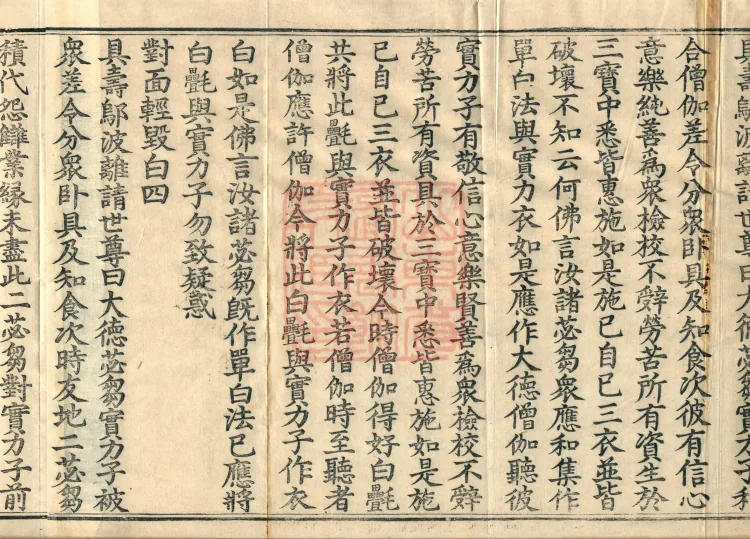 具壽鄔波離請世尊曰大德苾芻實力子被
合僧伽差令分衆卧具及知食次彼有信心
意樂純善爲衆檢校不辭勞苦所有資生於
三寶中悉皆惠施如是施已自己三衣並皆
破壞不知云何佛言汝諸苾芻衆應和集作
單白法與實力衣如是應作大德僧伽聽彼
實力子有敬信心意樂賢善爲衆檢校不辭
勞苦所有資具於三寶中悉皆惠施如是施
已自己三衣並皆破壞今時僧伽得好白㲲
共將此㲲與實力子作衣若僧伽時至聽者
僧伽應許僧伽今將此白㲲與實力子作衣
白如是佛言汝諸苾芻旣作單白法已應將
白㲲與實力子勿致疑惑
對面輕毀白四
具壽鄔波離請世尊曰大德苾芻實力子被
衆差令分衆卧具及知食次時友地二苾芻
積代怨讎業緣未盡此二苾芻對實力子前